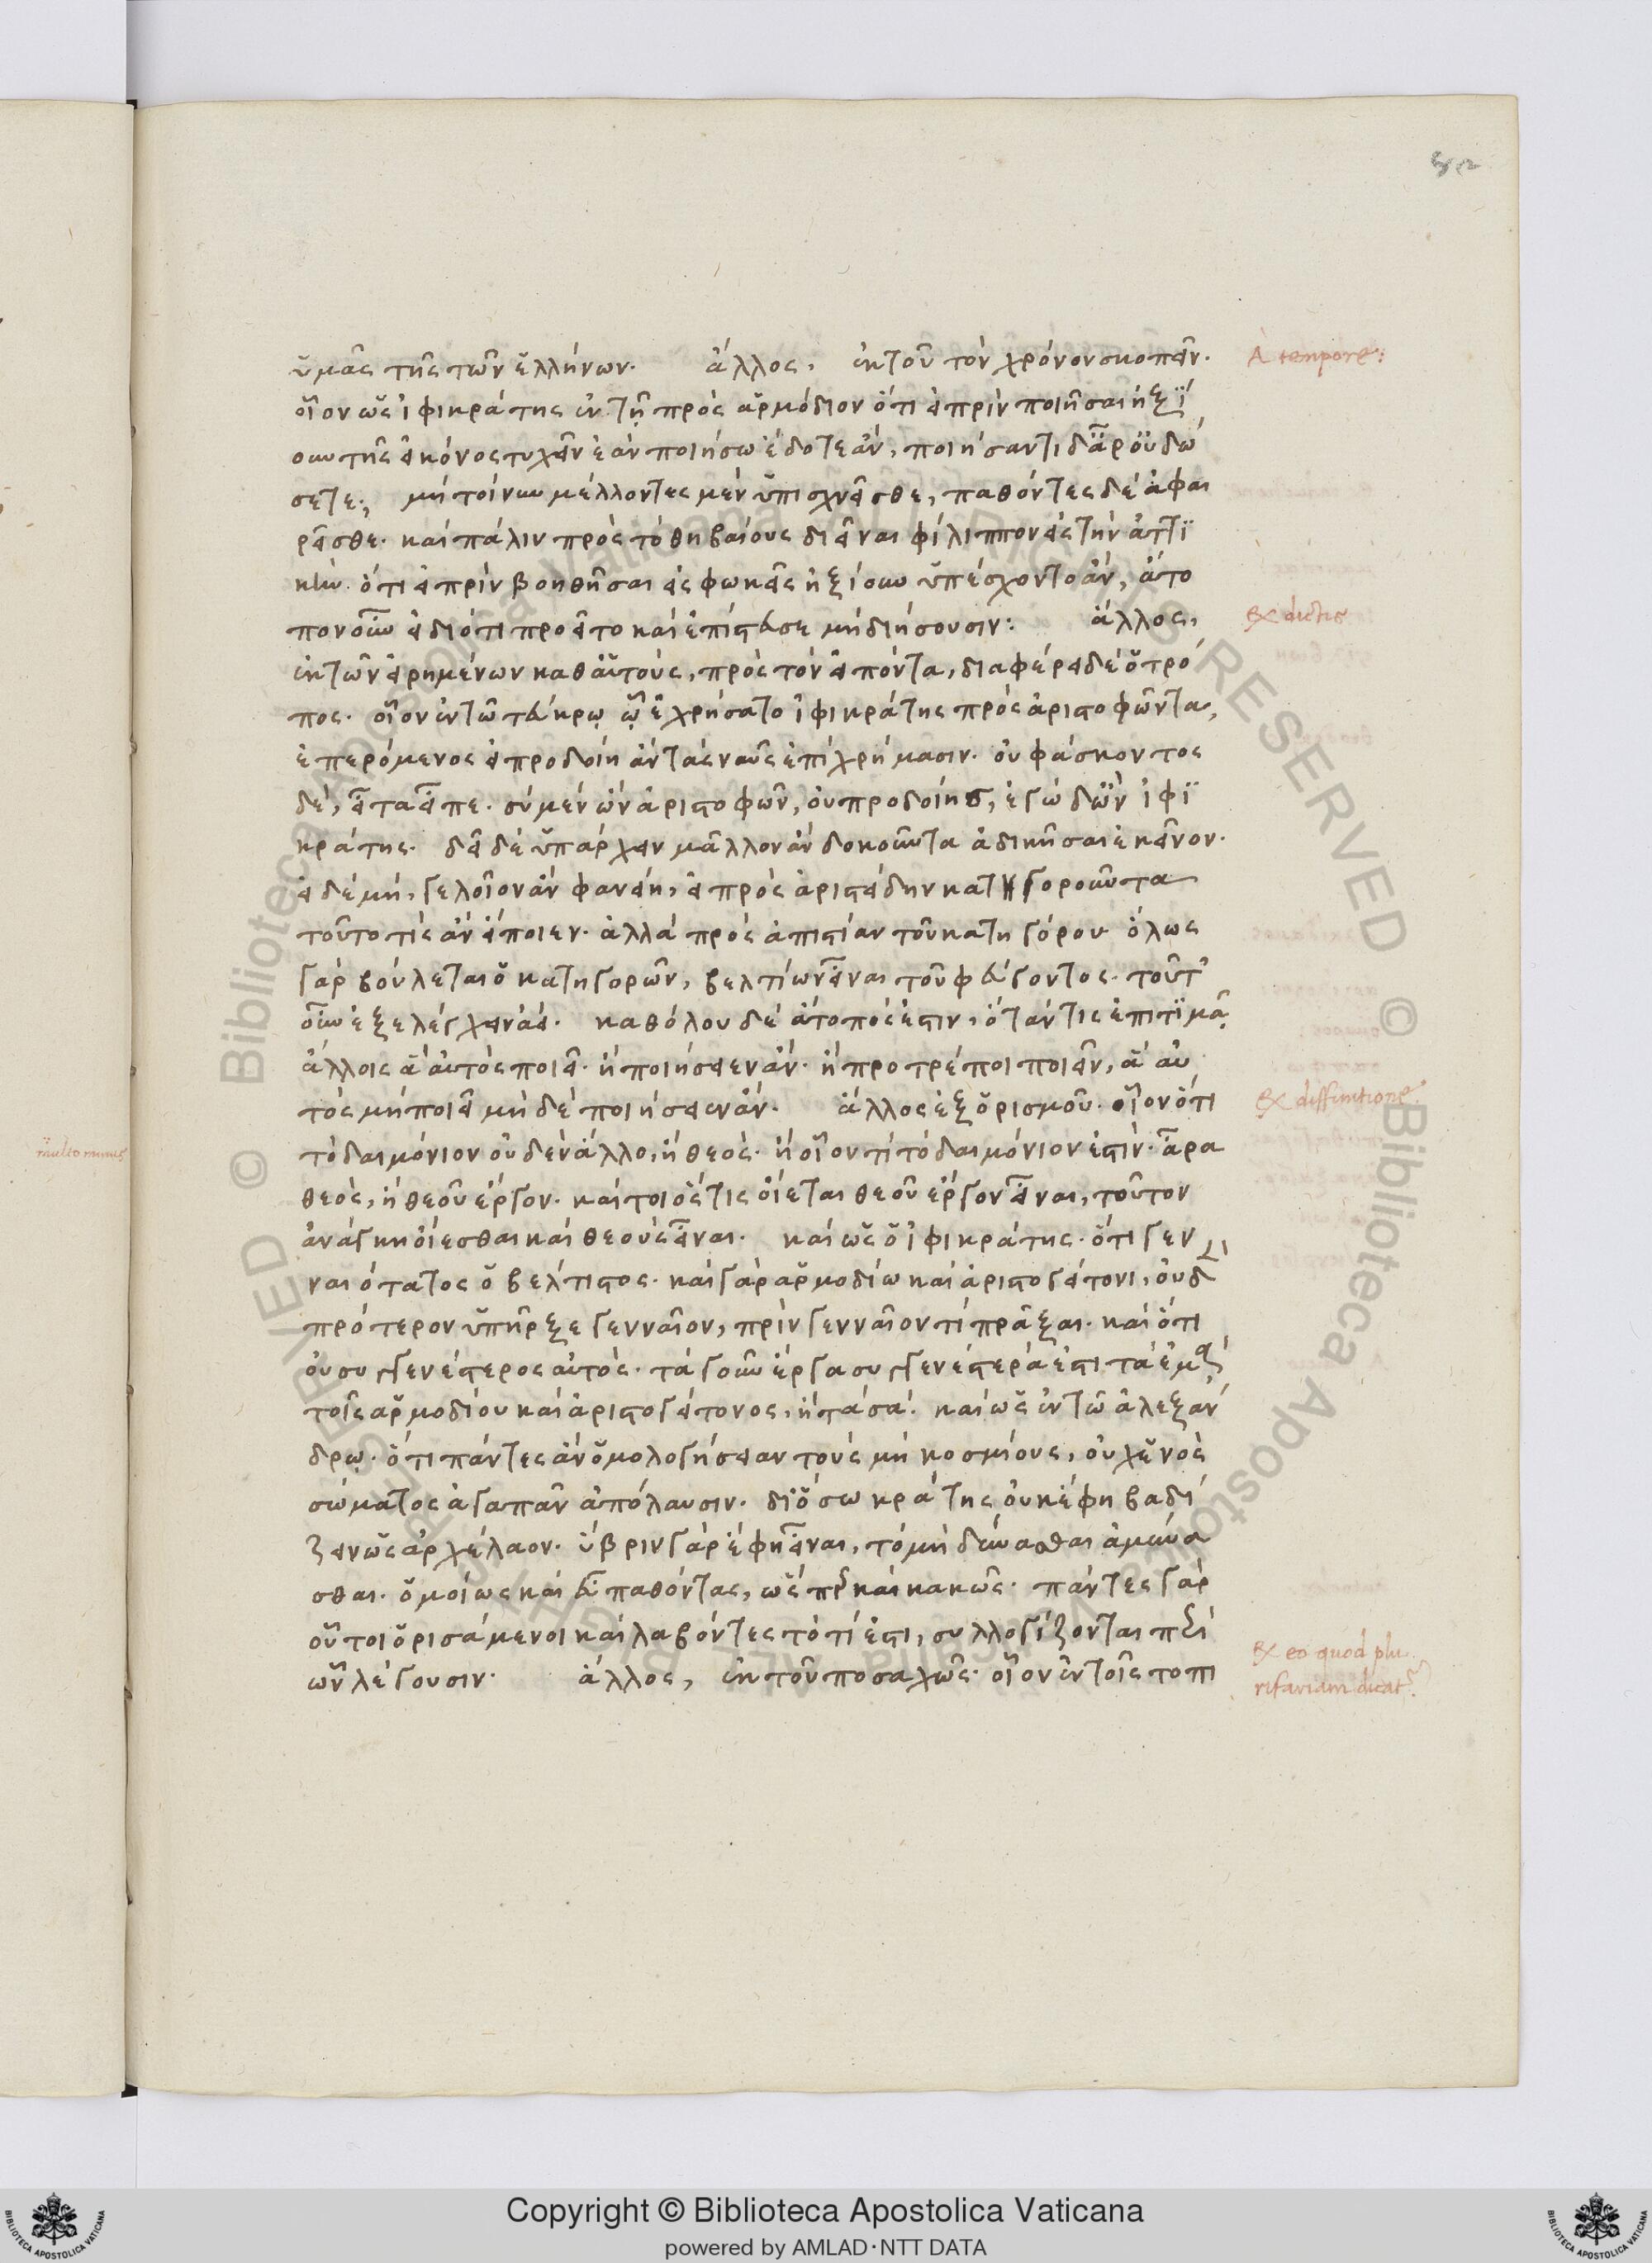 ὑμᾶς τῆς τῶν ἑλλήνων. ἄλλος, ἐκ τοῦ τὸν χρόνον σκοπεῖν. A tempore:
οἷον ὡς ἰφικράτης ἐν τῆ πρὸς ἁρμόδιον ὅτι εἰ πρὶν ποιῆσαι ἠξί
ουν τῆς εἰκόνος τυχεῖν ἐὰν ποιήσω ἔδοτε ἄν, ποιήσαντι δ' ἆρ' οὐ δώ
σετε; μὴ τοίνυν μέλλοντες μὲν ὑπισχνεῖσθε, παθόντες δὲ ἀφαι
ρεῖσθε. καὶ πάλιν πρὸς τὸ θηβαίους διεῖναι φίλιππον εἰς τὴν ἀττι
κήν. ὅτι εἰ πρὶν βοηθῆσαι εἰς φωκεῖς ἠξίουν ὑπέσχοντο ἄν, ἄτο
πον οὖν εἰ διότι προεῖτο καὶ ἐπίστευσε μὴ διήσουσιν: ἄλλος, Ex dictis
ἐκ τῶν εἰρημένων καθ' αὑτοὺς, πρὸς τὸν εἰπόντα, διαφέρει δὲ ὁ τρό
πος. οἷον ἐν τῶ τεύκρῳ ᾧ ἐχρήσατο ἰφικράτης πρὸς ἀριστοφῶντα,
ἐπερόμενος εἰ προδοίη ἂν τὰς ναῦς ἐπὶ χρήμασιν. οὐ φάσκοντος
δὲ, εἶτα εἶπε. σὺ μὲν ὢν ἀριστοφῶν, οὐ προδοίης, ἐγὼ δ' ὢν ἰφι
κράτης. δεῖ δὲ ὑπάρχειν μᾶλλον ἂν δοκοῦντα ἀδικῆσαι ἐκεῖνον.
εἰ δὲ μή, γελοῖον ἂν φανείη, εἰ πρὸς ἀριστείδην κατηγοροῦντα
τοῦτο τὶς ἂν εἴποιεν. ἀλλὰ πρὸς ἀπιστίαν τοῦ κατηγόρου. ὅλως
γὰρ βούλεται ὁ κατηγορῶν, βελτίων εἶναι τοῦ φεύγοντος. τοῦτ'
οὖν ἐξελέγχειν ἀεί. καθόλου δὲ ἄτοπός ἐστιν, ὅταν τις ἐπιτιμᾶ
ἄλλοις ἃ αὐτὸς ποιεῖ. ἢ ποιήσειεν ἄν. ἢ προτρέποι ποιεῖν, ἃ αὐ
τὸς μὴ ποιεῖ μὴ δὲ ποιήσειεν ἄν. ἄλλος ἐξ ὁρισμοῦ. οἷον ὅτι Ex diffinitione
τὸ δαιμόνιον οὐδὲν ἄλλο, ἢ θεός. ἢ οἷον τί τὸ δαιμόνιον ἐστίν. ἆρα
θεὸς, ἢ θεοῦ ἔργον. καίτοι ὅστις οἴεται θεοῦ ἔργον εἶναι, τοῦτον
ἀνάγκη οἴεσθαι καὶ θεοὺς εἶναι. καὶ ὡς ὁ ἰφικράτης. ὅτι γεν
ναιότατος ὁ βέλτιστος. καὶ γὰρ ἁρμοδίω καὶ ἀριστογείτονι, οὐδὲν
πρότερον ὑπῆρξε γενναῖον, πρὶν γενναῖον τὶ πρᾶξαι. καὶ ὅτι
οὐ συγγενέστερος αὐτός. τὰ γοῦν ἔργα συγγενέστερά ἐστι τὰ ἐμὰ
τοῖς ἁρμοδίου καὶ ἀριστογείτονος, ἢ τὰ σά. καὶ ὡς ἐν τῶ ἀλεξάν
δρῳ. ὅτι πάντες ἂν ὁμολογήσειαν τοὺς μὴ κοσμίους, οὐχ ἑνὸς
σώματος ἀγαπᾶν ἀπόλαυσιν. διὸ σωκράτης οὐκ ἔφη βαδί
ζειν ὡς ἀρχέλαον. ὕβριν γὰρ ἔφη εἶναι, τὸ μὴ δύνασθαι ἀμύνα
σθαι. ὁμοίως καὶ εὖ παθόντας, ὥσπερ καὶ κακῶς. πάντες γὰρ
οὗτοι ὁρισάμενοι καὶ λαβόντες τὸ τί ἐστι, συλλογίζονται περὶ
ὧν λέγουσιν. ἄλλος, ἐκ τοῦ ποσαχῶς. οἷον ἐν τοῖς τοπι
Ex eo quod plu
rifariam dicat
multo minus
© Biblioteca Apostolica Vaticana ALL RIGHTS RESERVED
Copyright © Biblioteca Apostolica Vaticana
powered by AMLAD·NTT DATA
BIBLIOTECA APOSTOLICA VATICANA
BIBLIOTECA APOSTOLICA VATICANA